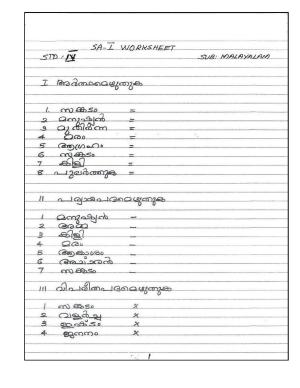 SA-I WORKSHEET
STD: IV SUB: MALAYALAM
I അർത്ഥമെഴുതുക
1. സങ്കടം =
2 മനുഷ്യൻ =
3 മുതിർന്ന =
4 മരം =
5 ആഗ്രഹം =
6 സങ്കടം =
7 കിളി =
8 പുലർത്തുക =
II പര്യായപദമെഴുതുക
1 മനുഷ്യൻ -
2 അമ്മ -
3 കിളി -
4 മരം -
5 ആകാശം -
6 അച്ഛൻ -
7 സങ്കടം -
III വിപരീതപദമെഴുതുക
1 സങ്കടം x
2 വളർച്ച x
3 ഇഷ്ടം x
4 ജനനം x
1